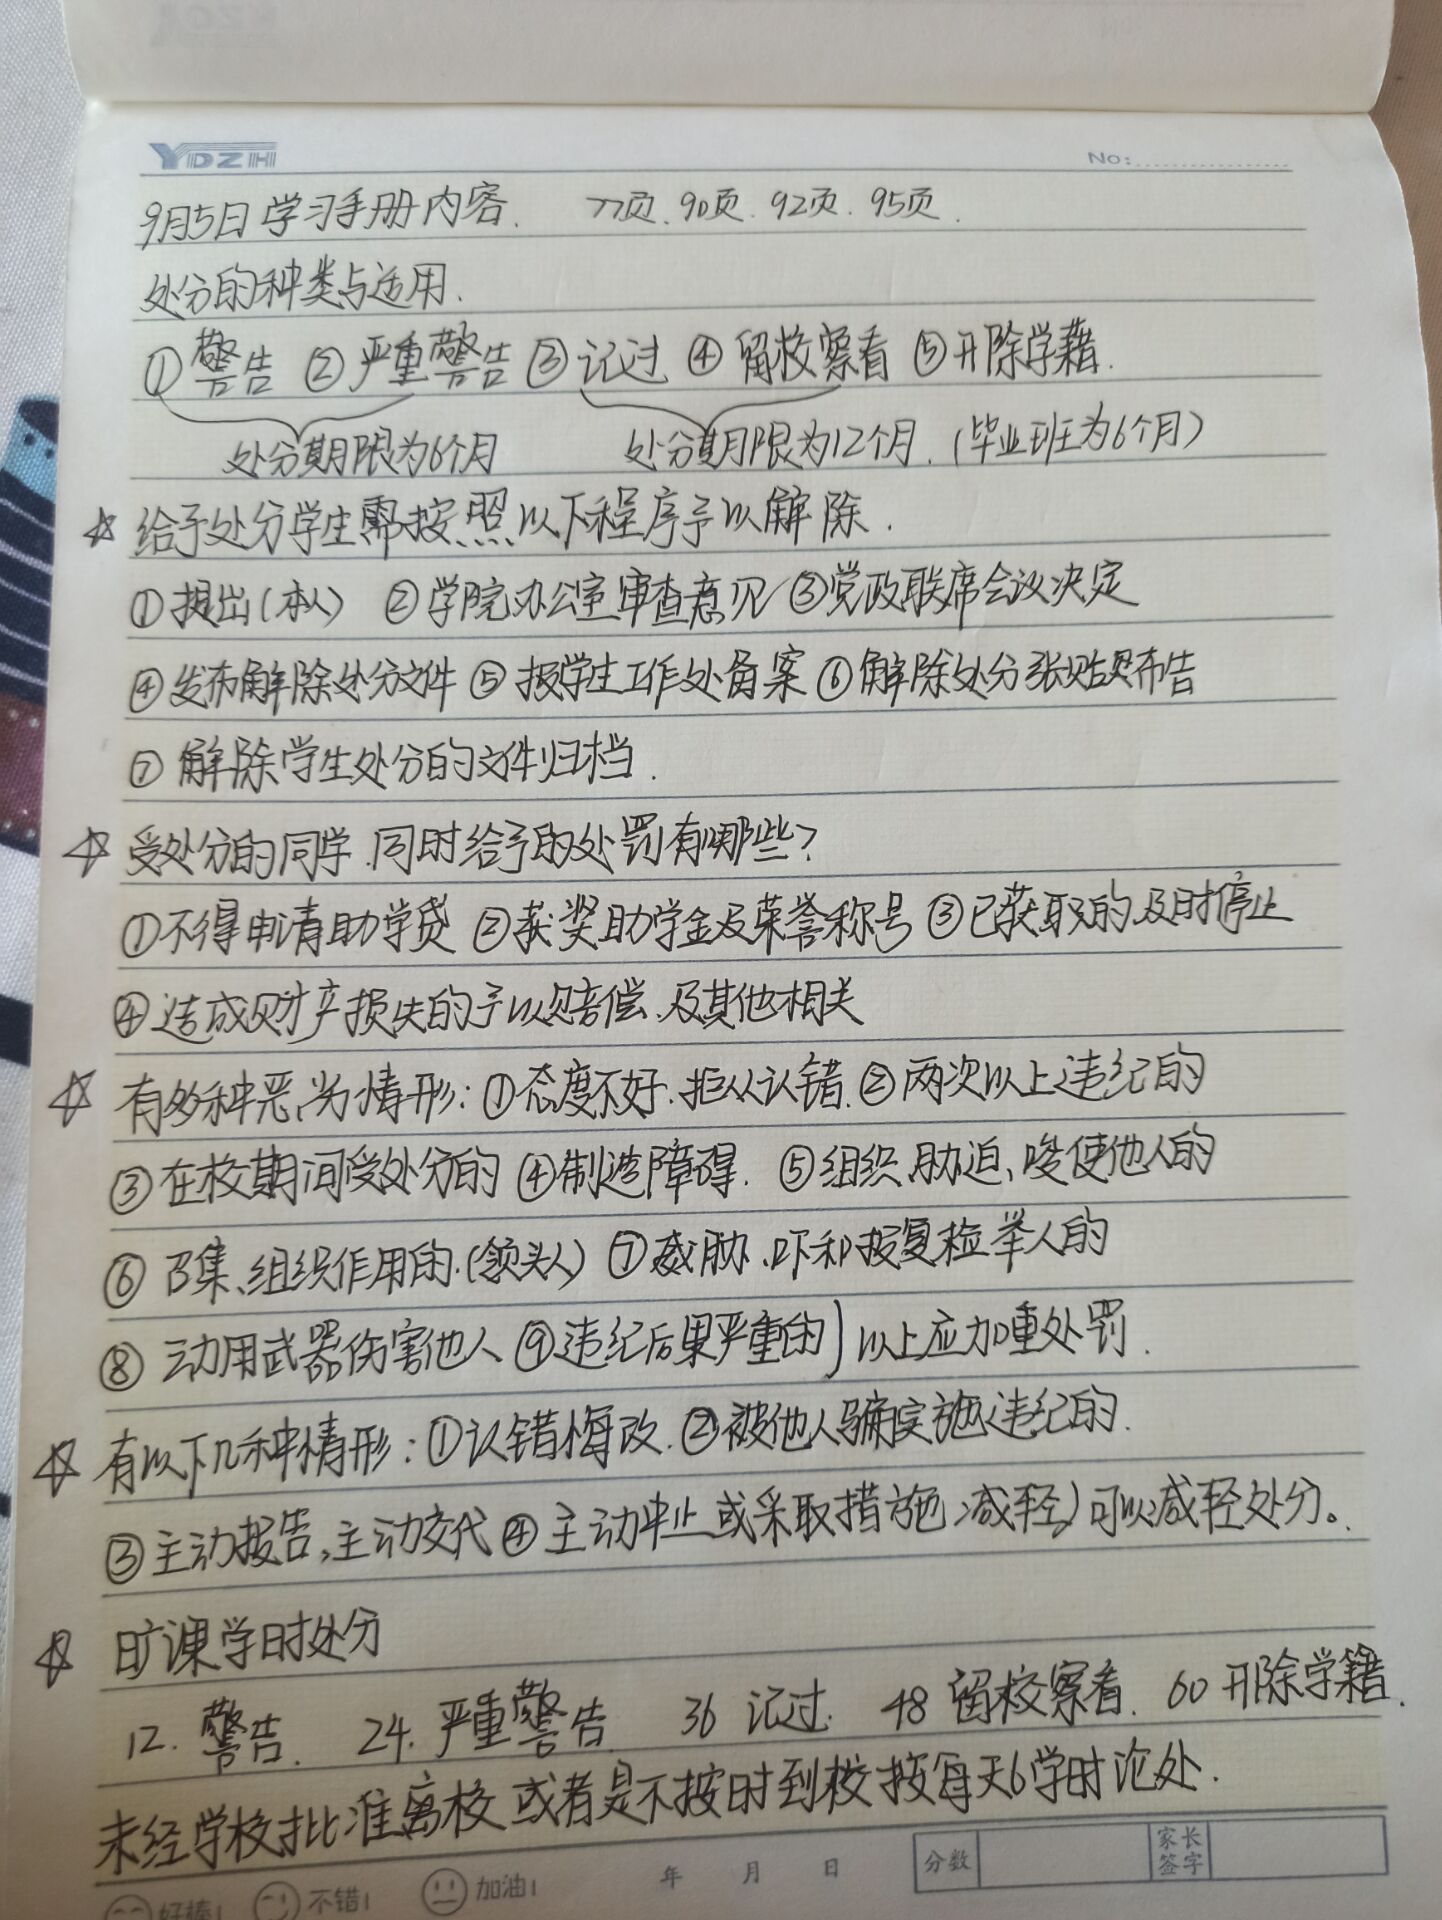 YDZH
No:
9月5日学习手册内容. 77页.90页.92页.95页.
处分的种类与适用.
①警告 ②严重警告 ③记过 ④留校察看 ⑤开除学籍.
处分期限为6个月 处分期限为12个月.(毕业班为6个月)
☆给予处分学生需按照以下程序予以解除.
①提出(本人) ②学院办公室审查意见 ③党政联席会议决定
④发布解除处分文件 ⑤报学生工作处备案 ⑥解除处分张贴布告
⑦解除学生处分的文件归档.
☆受处分的同学.同时给予的处罚有哪些?
①不得申请助学贷 ②获奖助学金及荣誉称号 ③已获取的及时停止
④造成财产损失的予以赔偿、及其他相关
☆有多种恶为情形:①态度不好.拒认错.②两次以上违纪的
③在校期间受处分的 ④制造障碍. ⑤组织、胁迫、唆使他人的
⑥召集、组织作用的.(领头人) ⑦威胁.吓和报复检举人的
⑧动用武器伤害他人 ⑨违纪后果严重的)以上应加重处罚.
☆有以下几种情形:①认错悔改.②被他人骗实施违纪的.
③主动报告,主动交代 ④主动中止或采取措施减轻)可以减轻处分。.
☆旷课学时处分
12.警告. 24.严重警告 36 记过. 48 留校察看. 60 开除学籍.
未经学校批准离校或者是不按时到校按每天6学时论处.
分数 家长签字
年 月 日
好棒! 不错! 加油!